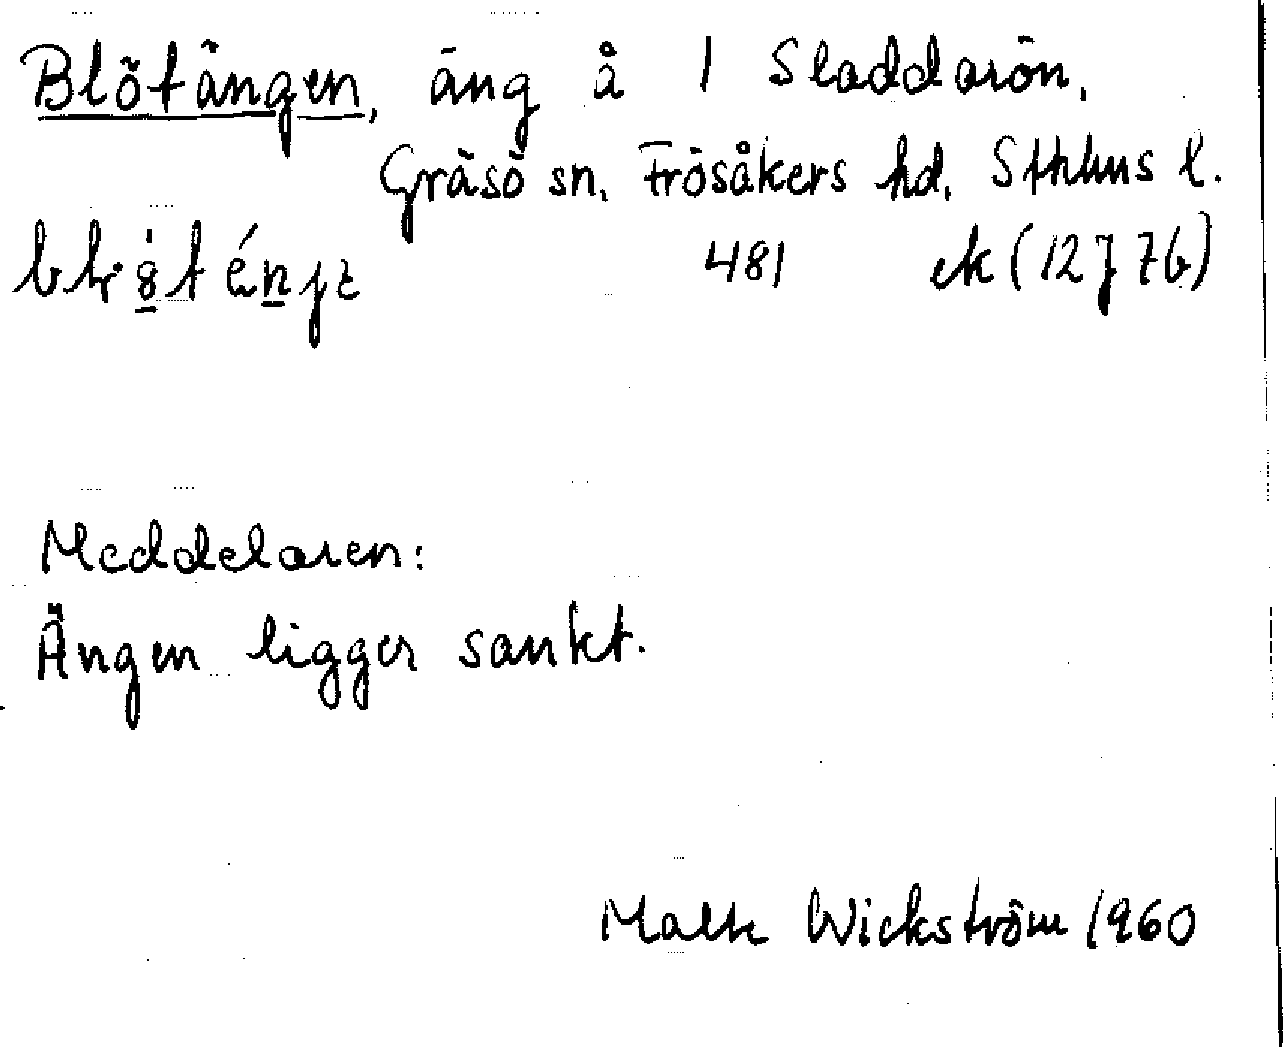 Blötängen, äng å 1 Sladdarön,
Gräsö sn, Frösåkers hd, Sthlms l.
481 ek (12J 7b)
Meddelaren:
Ängen ligger sankt.
Wickström 1960